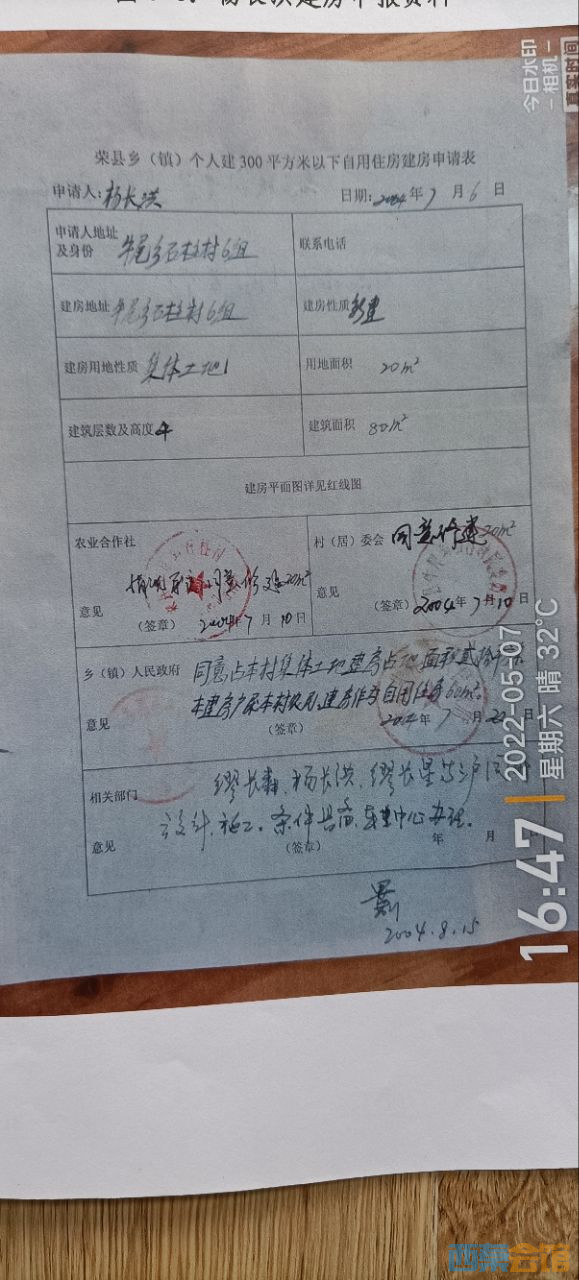 杨长洪建房申报资料
荣县乡（镇）个人建300平方米以下自用住房建房申请表
申请人：杨长洪 日期：2004年7月6日
申请人地址及身份 牛尾乡石柱村6组 联系电话
建房地址 牛尾乡石柱村6组 建房性质 新建
建房用地性质 集体土地 用地面积 20m²
建筑层数及高度 4 建筑面积 80m²
建房平面图详见红线图
农业合作社 村（居）委会 同意修建20m²
同意修建20m²
意见 （签章） 2004年7月10日 意见 （签章） 2004年7月10日
乡（镇）人民政府 同意占本村集体土地建房占地面积贰拾
本建房户系本村农民，建房作为自用住房60m²。
意见 （签章） 2004年7月22日
相关部门 缪长森、杨长洪、缪长星等三户
设计、施工。条件具备，中心办理。
意见 （签章） 年 月
2004.8.15
今日水印
-相机-
真实时间
16:47
2022-05-07
星期六 晴 32℃
西祠会馆